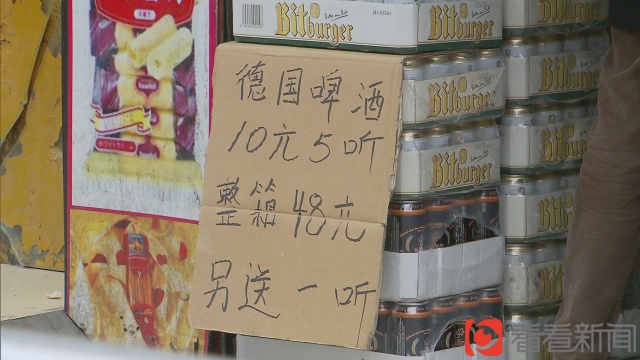 Bitburger
Bitburger
德国啤酒
10元5听
整箱48元
另送一听
Bitburger
Bitburger
Bitburger
Bitburger
Bitburger
Bitburger
看看新闻